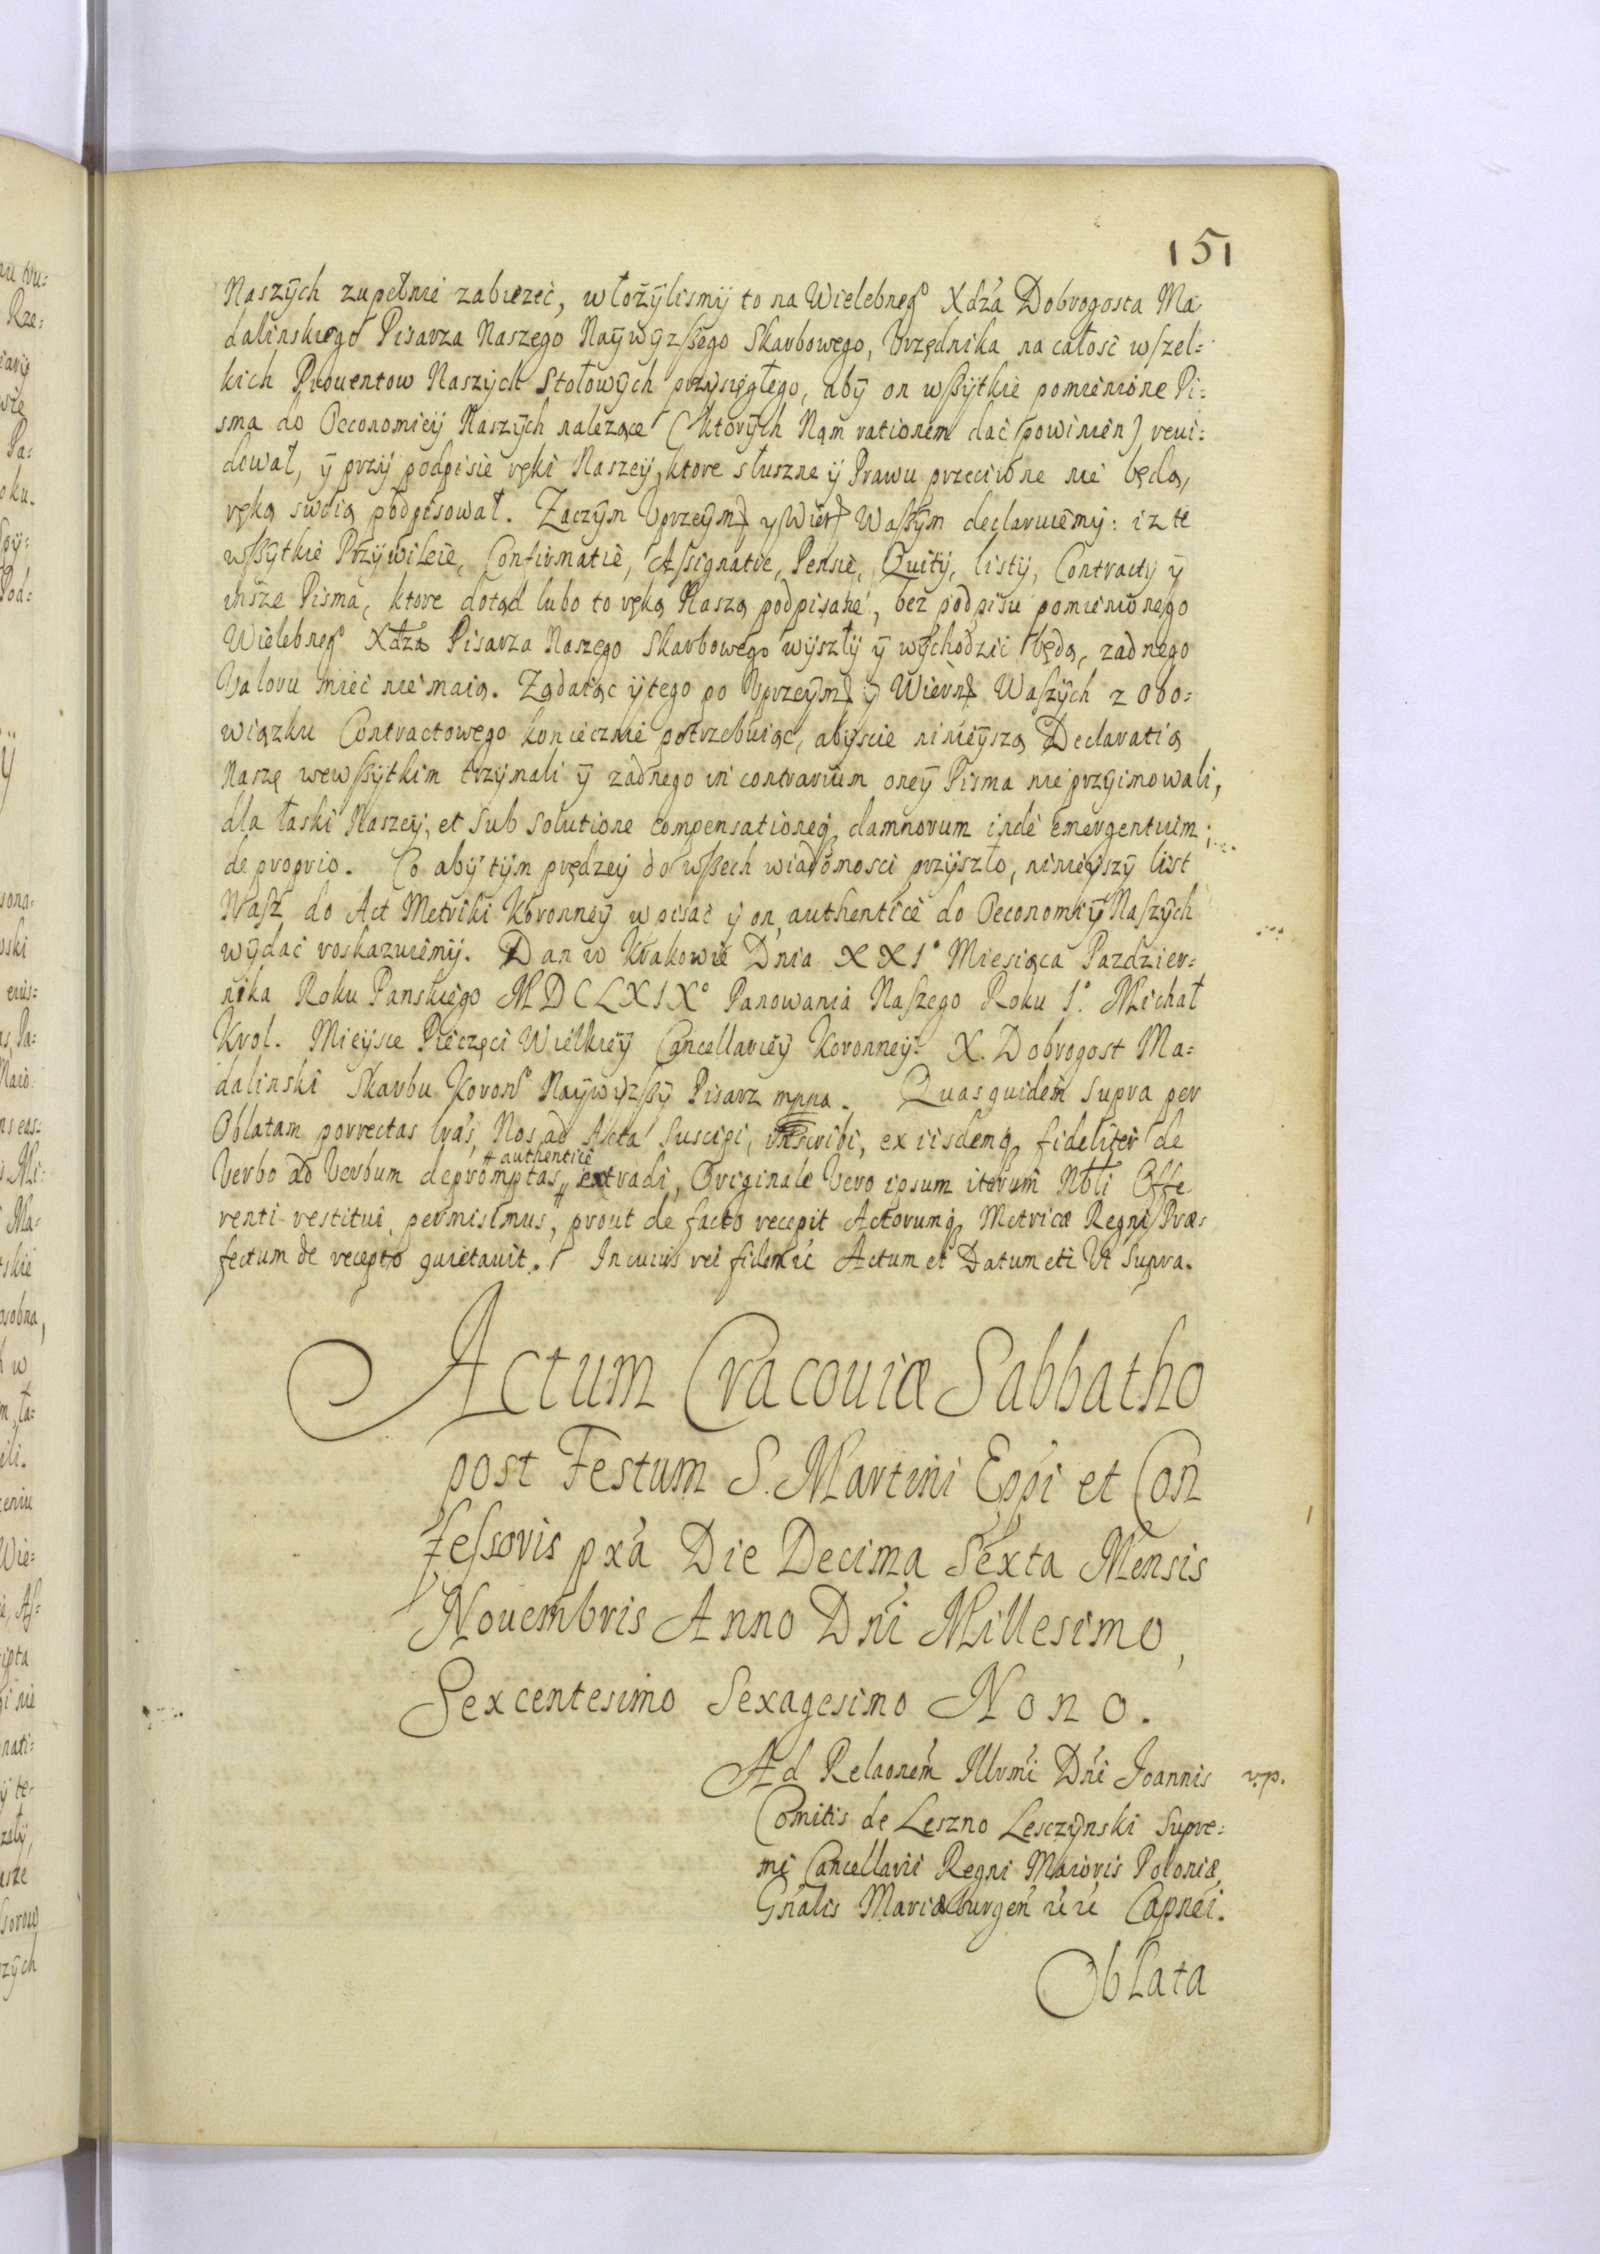 151
Naszych zupełnie zabieżeć, włożylismy to na Wielebneg° Xdza Dobrogosta Ma
dalinskiego Pisarza Naszego Naywyzszego Skarbowego, Vrzędnika na całość wszel=
kich Prouentow Naszych Stołowych przysięgłego, aby on wszytkie pomienione Pi=
sma do Oeconomiey Naszych nalezące (ktorych Nąm rationem dać powinien) reui=
dował, y przy podpisie ręki Naszey, ktore słuszne y Prawu przeciwne nie będą,
ręką swoią podpisował. Zaczym Vprzeym y Wier Waszym declaruiemy: iz te
wszytkie Przywileie, Confirmatie, Assignatie, Pensie, Quity, listy, Contracty y
insze Pisma, ktore dotąd lubo to ręką Naszą podpisane, bez podpisu pomienionego
Wielebneg° Xdza Pisarza Naszego Skarbowego wyszły y wychodzić będą, zadnego
Valoru mieć nie maią. Ządaiąc y tego po Vprzeym y Wiern Waszych z obo=
wiązku Contractowego koniecznie potrzebuiąc, abyscie ninieyszą Declaratią
Naszę wewszytkim trzymali y zadnego in contrarium oney Pisma nie przyimowali,
dla łaski Naszey, et sub solutione compensationeq damnorum inde emergentium
de proprio. Co aby tym prędzey do wszech wiadomosci przyszło, ninieyszy list
Nasz do Act Metriki Koronney wpisać y on authentice do Oeconomiy Naszych
wydać roskazuiemy. Dan w Krakowie Dnia XXI° Miesiąca Pazdzier=
nika Roku Panskiego MDCLXIX° Panowania Naszego Roku I° Michał
Krol. Mieysce Pieczęci Wielkiey Cancellariey Koronney. X. Dobrogost Ma=
dalinski Skarbu Koron° Naywyzszy Pisarz mppa. Quas quidem supra per
Oblatam porrectas lras, Nos ad Acta suscipi, inscribi, ex iisdemq fideliter de
authentice
Verbo ad Verbum depromptas extradi, Originale Vero ipsum iterum Nbli Offe
renti restitui permisimus, prout de facto recepit Actorumq Metricæ Regni Præ=
fectum de recepto quietauit. In cuius rei fidem Actum et Datum Ut Supra.
Actum Cracouiæ Sabbatho
post Festum S. Martini Eppi et Con
fessoris pxa Die Decima Sexta Mensis
Nouembris Anno Dni Millesimo,
Sexcentesimo Sexagesimo Nono.
Ad Relaonem Illrmi Dni Joannis
v.p.
Comitis de Leszno Lesczynski Supre=
mi Cancellarii Regni Maioris Poloniæ
Gnalis Mariæburgen Capnei.
Oblata